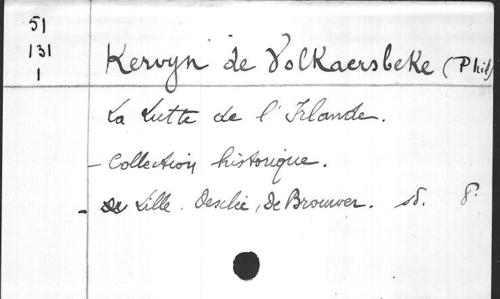 51
131
1
Kervyn de Volkaersbeke (Phil)
La Lutte de l'Irlande.
- Collection historique.
- Lille. Desclée, De Brouwer. sd. 8°